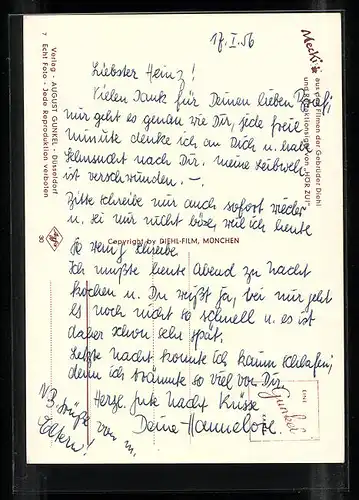 17.I.56
Liebster Heinz!
Vielen Dank für Deinen lieben Brief;
mir geht es genau wie Dir, jede freie
minute denke ich an Dich u. habe
Sehnsucht nach Dir. meine Leibweh
ist verschwunden. -.
Bitte schreibe mir auch sofort wieder
u. sei mir nicht böse, weil ich heute
so wenig schreibe.
Ich mußte heute Abend zu Nacht
kochen u. Du weißt ja, bei mir geht
es noch nicht so schnell u. es ist
daher schon sehr spät.
Letzte Nacht konnte ich kaum schlafen;
denn ich träumte so viel von Dir.
Herzl. gute Nacht Küsse
Deine Hannelore.
NB Grüße von m.
Eltern!
Mecki
aus den Filmen der Gebrüder Diehl
und Redaktionsigel von „HÖR ZU!"
Copyright by DIEHL-FILM, MÜNCHEN
Verlag - AUGUST GUNKEL - Düsseldorf
7 Echt Foto - Jede Reproduktion verboten
8
Gunkel